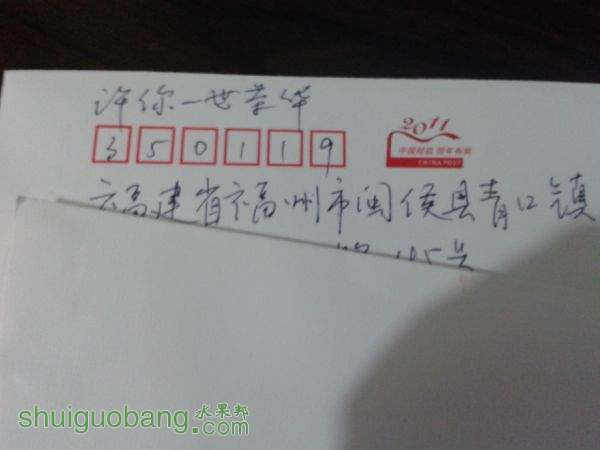 许你一世荣华
350119
2011
中国邮政 贺年有奖
CHINA POST
福建省福州市闽侯县青口镇
105号
shuiguobang.com
水果邦